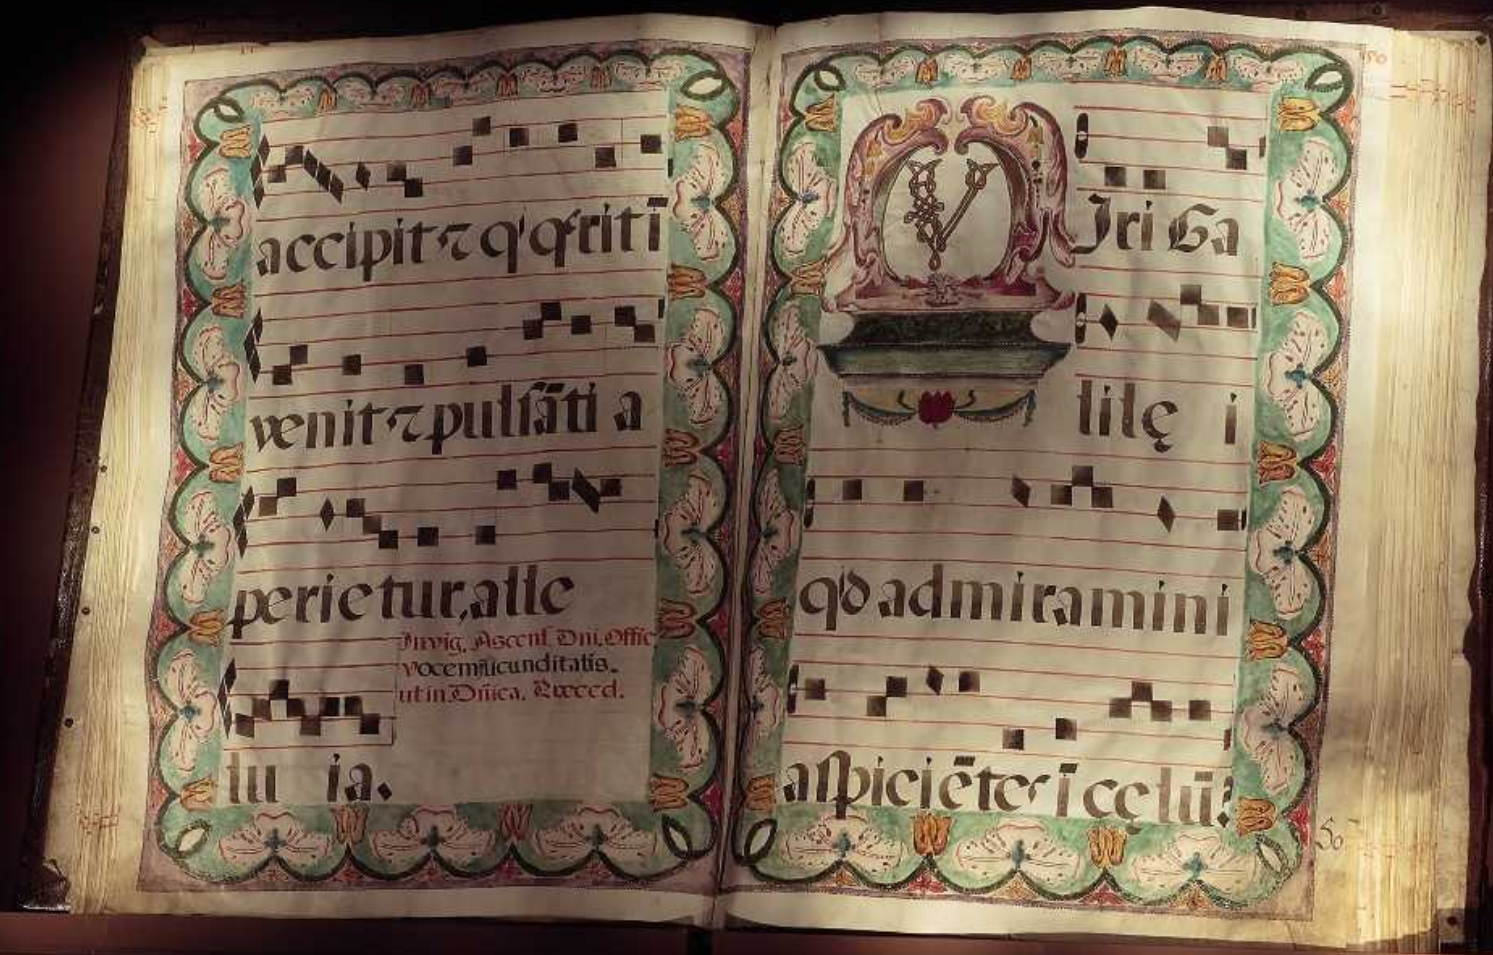 accipit ⁊ q' q̃rit ī
venit ⁊ pulsāti a
perietur, alle
In vig. Ascens. Dni. Offic
vocem jucunditatis.
ut in Dñica. Præced.
lu ia.
VIri Ga
lilę i
qd admiramini
aspiciētes ī cęlū?
50
50